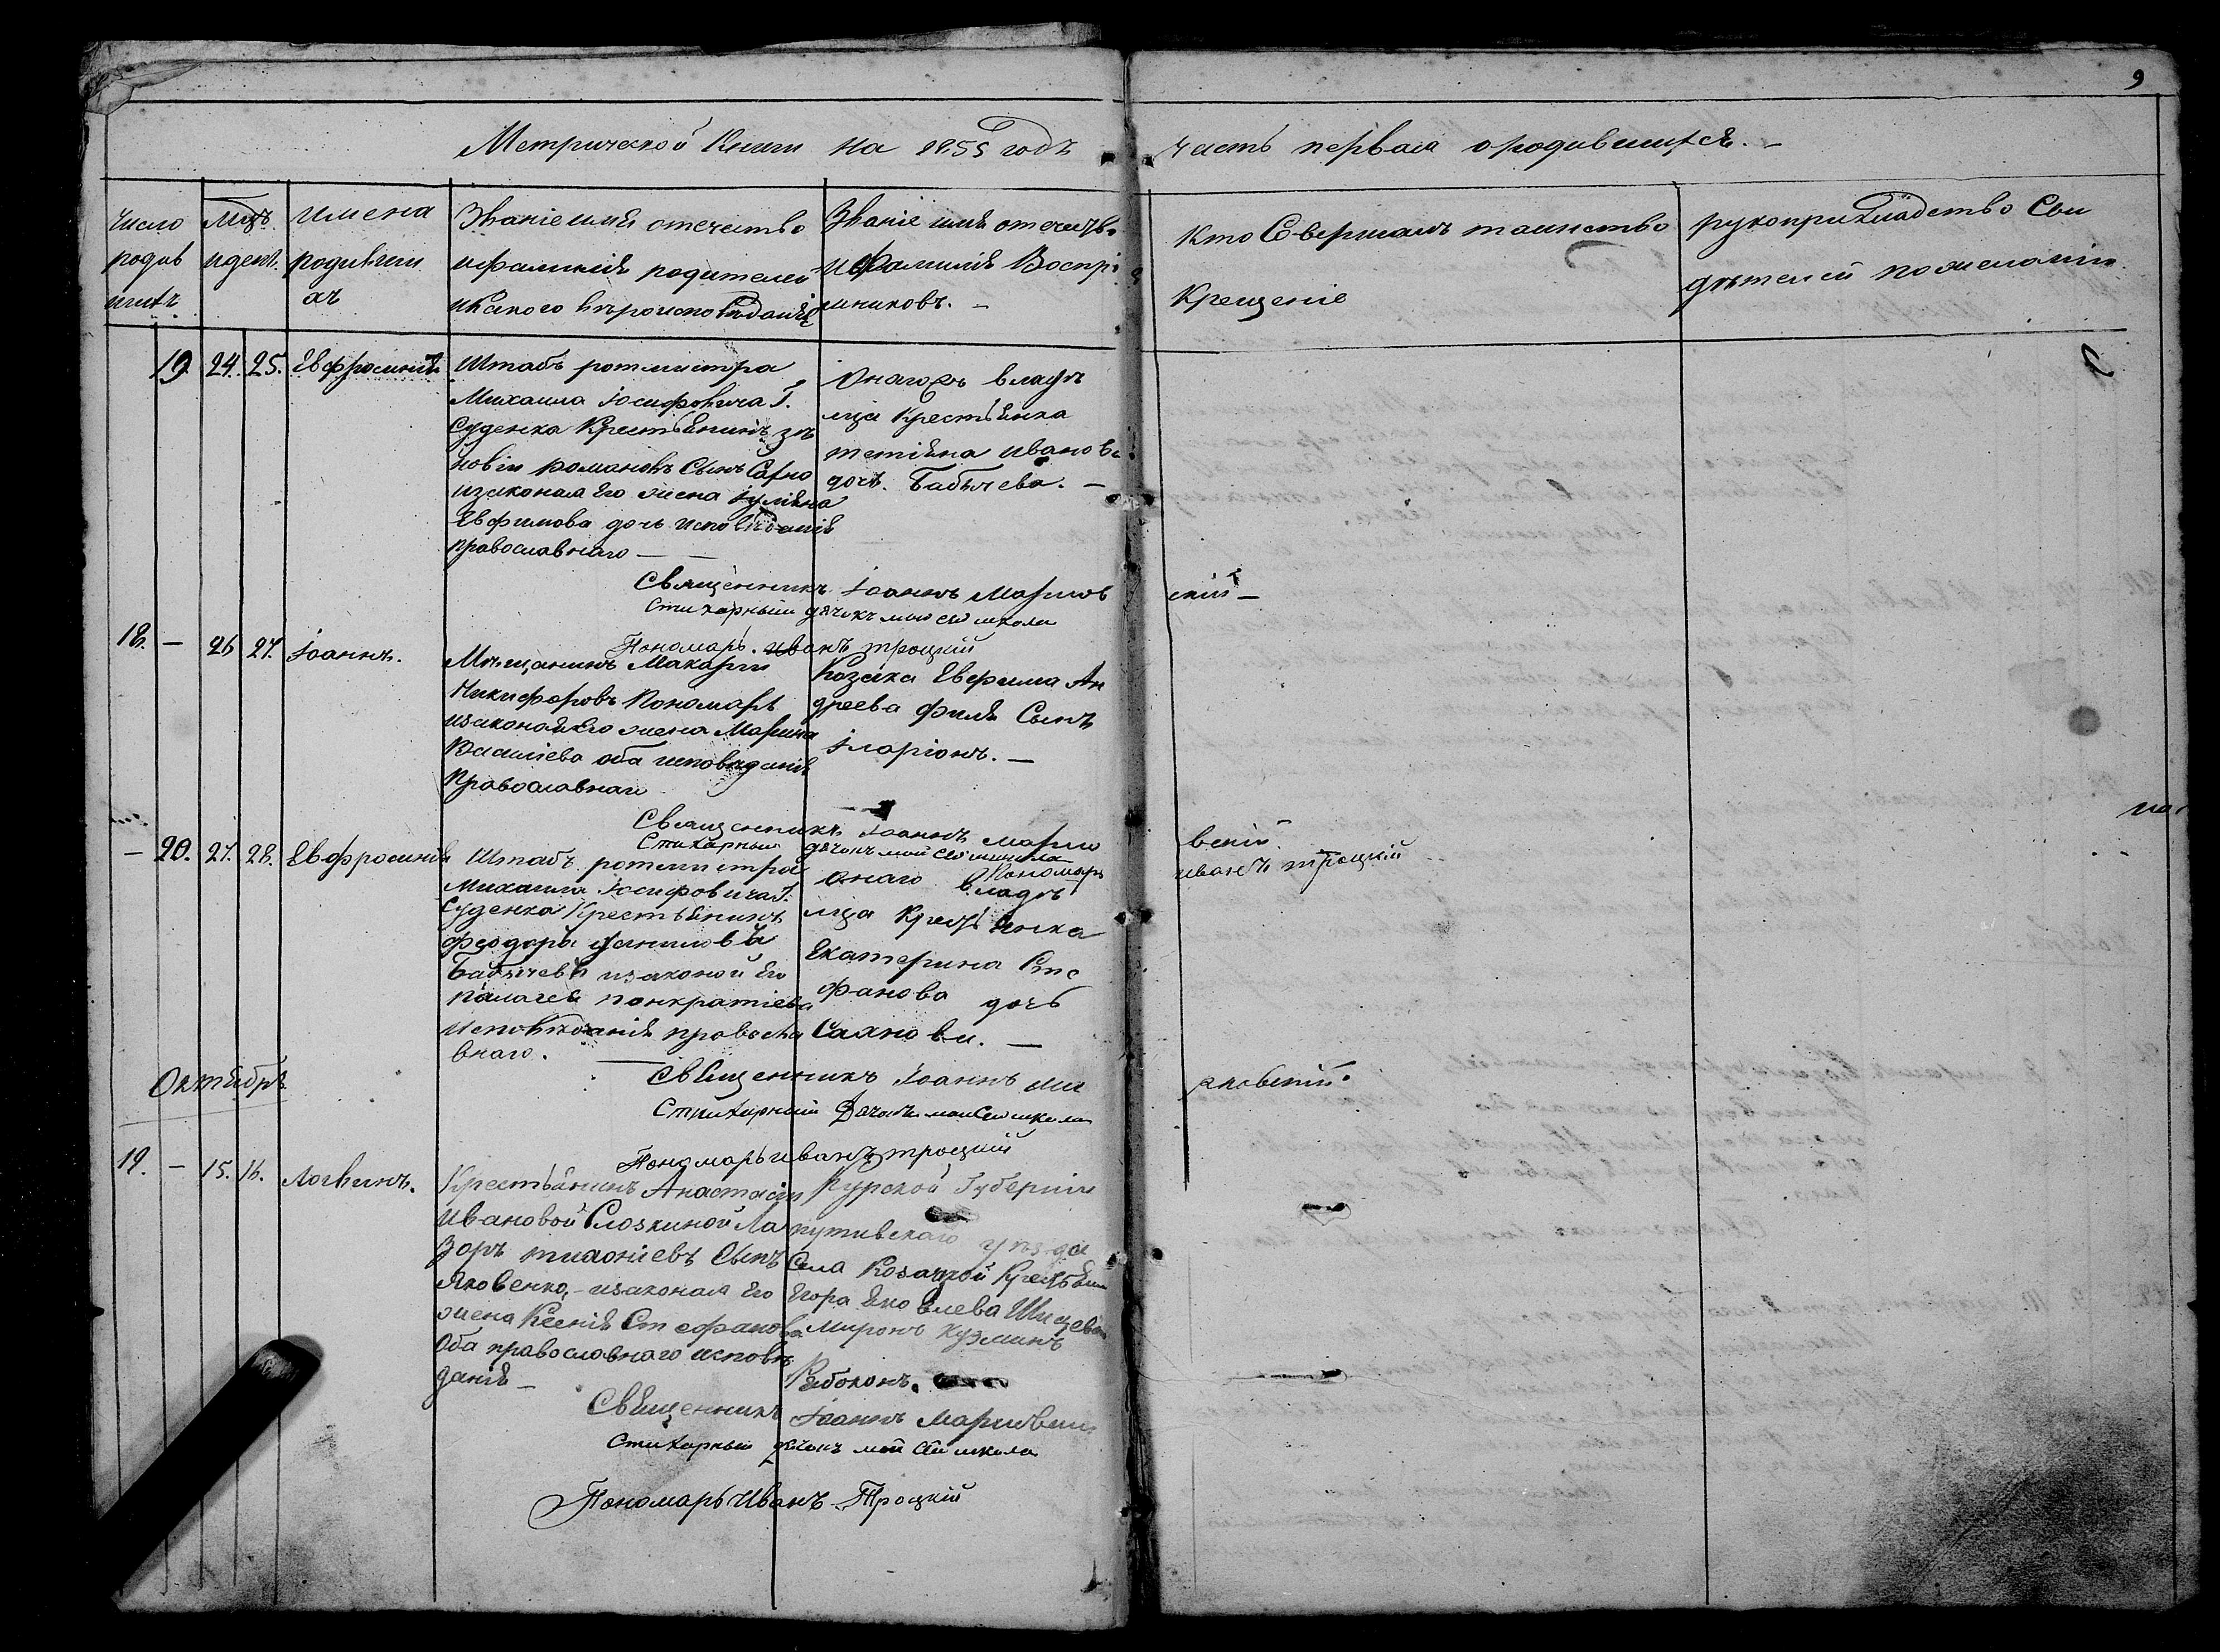 9
Метрической Книги на 1855 годъ
часть первая ородившихся. -
Число
родив
шихъ
Мцъ
иденъ.
имена
родивши
хъ
Званіе имя отечество
ифамилія родителей
икакого вѣроисповѣданія
Званіе имя отечеств.
ифамилія Воспрі
мниковъ. -
Кто Совершалъ таинство
Крещеніе
рукоприкладство Сви
дѣтелей пожеланію
19 24. 25. Евфросинія
Штабъ ротмистра
Михаила Іосифовича Г.
Суденка Крестьянинъ зѣ
новій романовъ Сынъ
изаконая Его жена Іуліяна
Евфимова дочь исповѣданія
православнаго —
Онагожъ владѣ
лца Крестьянка
тетіяна иванова
дочь. Бабичева. -
Священникъ Іоаннъ Марков
скій -
Стихарный дячокъ моисей школа
Пономарь. иванъ троцкій
18. - 26 27. Іоаннъ.
Мѣщанинъ Макарій
Никифоровъ Пономарь
изаконая Его жена Марина
Василіева оба исповѣданія
Православнаго
Козака Евфима Ан
дреева филя Сынъ
Іларіонъ. —
Священникъ Іоаннъ марко
вскій
Стихарный дячокъ моисей школа
Пономарь
иванъ троцкій
- 20. 27. 28. Евфросинія
Штабъ ротмистра
Михаила Іосифовича Г.
Суденка Крестьянинъ
феодоръ даниловъ
Бабичевъ изаконой Его
палагея панкратіева
исповѣданія правосла
внаго.
Онаго владѣ
лца Крестьянка
Екатерина Сте
фанова дочь
Сахнова. —
Священникъ Іоаннъ Ма
рковскій.
Стихарный Дячокъ моисей школа
Пономарь иванъ троцкій
Октябрь
19. - 15. 16. Логвинъ.
Крестьянинъ Анастасіи
Ивановой Слозкиной Ла
зоръ тихоніевъ Сынъ
Яковенко, - изаконая Его
жена Ксенія Стефанова
Оба православнаго исповѣ
данія -
Курской Губерніи
путивскаго уѣзда
Села Козачкой Крестьян
Егора Яковлева
Миронъ Кузминъ
Рябоконъ.
Священникъ Іоаннъ Марковскі
Стихарный дячокъ моисей школа
Пономарь Иванъ Троцкій